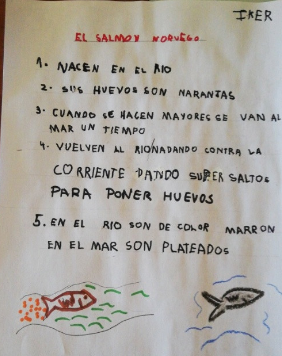 IKER
EL SALMON NORUEGO
1. NACEN EN EL RIO
2. SUS HUEVOS SON NARANJAS
3. CUANDO SE HACEN MAYORES SE VAN AL
MAR UN TIEMPO
4. VUELVEN AL RIO NADANDO CONTRA LA
CORRIENTE DANDO SUPER SALTOS
PARA PONER HUEVOS
5. EN EL RIO SON DE COLOR MARRON
EN EL MAR SON PLATEADOS